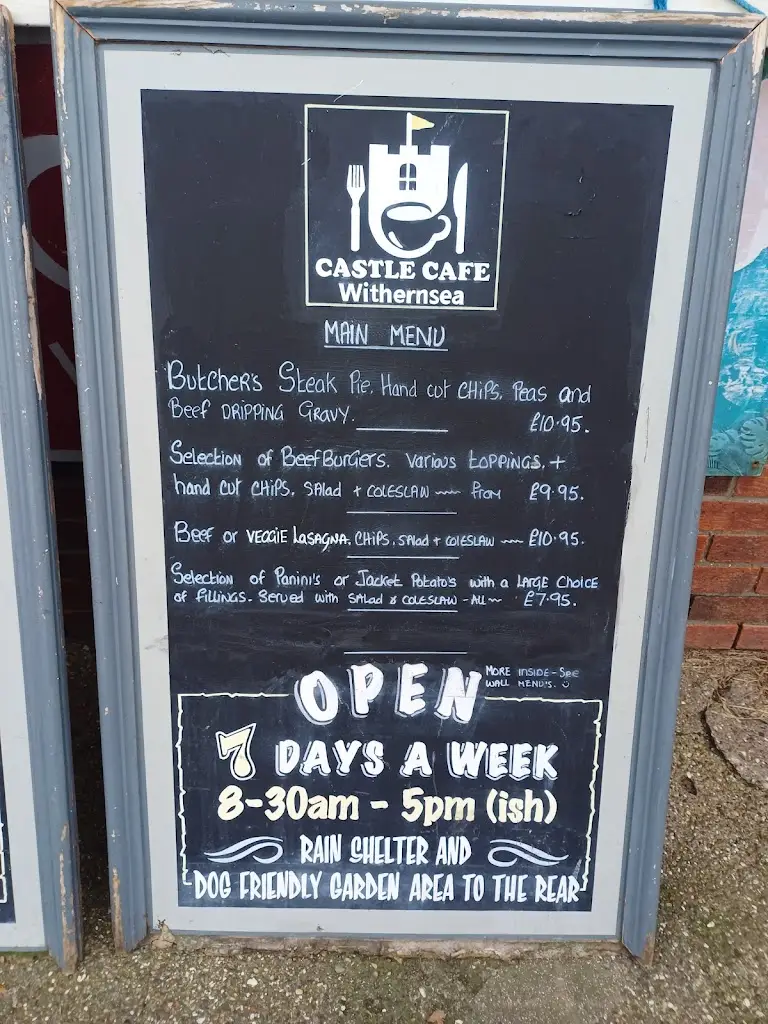 CASTLE CAFE
Withernsea
MAIN MENU
Butcher's Steak Pie, Hand cut CHIPS, Peas and
Beef DRIPPING GRAVY. £10.95.
Selection of BeefBurgers. Various toppings, +
hand cut CHIPS, Salad + COLESLAW ~~~ from £9.95.
Beef or VEGGIE LASAGNA, CHIPS, Salad + COLESLAW ~~~ £10.95.
Selection of Panini's or Jacket Potato's with a LARGE CHOICE
of FILLINGS - Served with SALAD & COLESLAW - ALL ~ £7.95.
MORE INSIDE - See
WALL MENU'S. ☺
OPEN
7 DAYS A WEEK
8-30am - 5pm (ish)
RAIN SHELTER AND
DOG FRIENDLY GARDEN AREA TO THE REAR